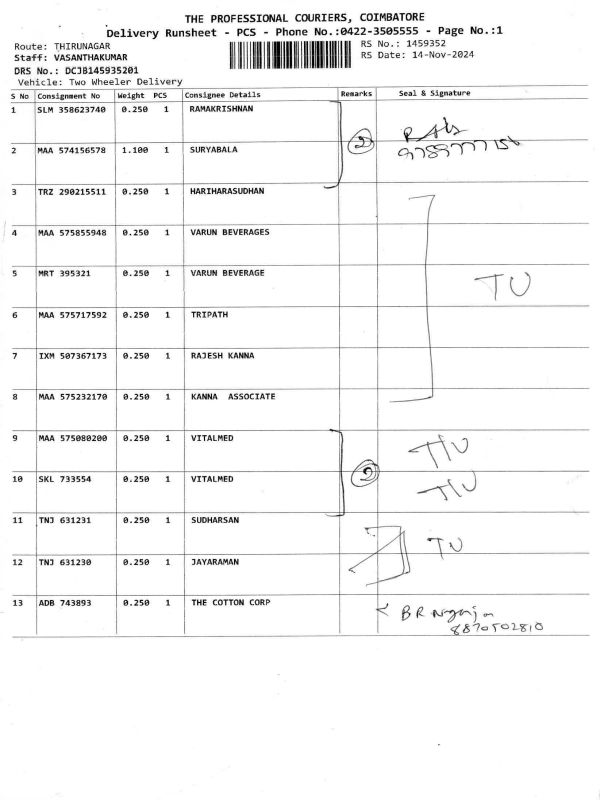 THE PROFESSIONAL COURIERS, COIMBATORE
Delivery Runsheet - PCS - Phone No.:0422-3505555 - Page No.:1
Route: THIRUNAGAR
RS No.: 1459352
Staff: VASANTHAKUMAR
RS Date: 14-Nov-2024
DRS No.: DCJB145935201
Vehicle: Two Wheeler Delivery
S No Consignment No Weight PCS Consignee Details Remarks Seal & Signature
1 SLM 358623740 0.250 1 RAMAKRISHNAN
2 MAA 574156578 1.100 1 SURYABALA
2
3 TRZ 290215511 0.250 1 HARIHARASUDHAN
4 MAA 575855948 0.250 1 VARUN BEVERAGES
5 MRT 395321 0.250 1 VARUN BEVERAGE
TU
6 MAA 575717592 0.250 1 TRIPATH
7 IXM 507367173 0.250 1 RAJESH KANNA
8 MAA 575232170 0.250 1 KANNA ASSOCIATE
9 MAA 575080200 0.250 1 VITALMED
10 SKL 733554 0.250 1 VITALMED
11 TNJ 631231 0.250 1 SUDHARSAN
TU
12 TNJ 631230 0.250 1 JAYARAMAN
13 ADB 743893 0.250 1 THE COTTON CORP
8870502810